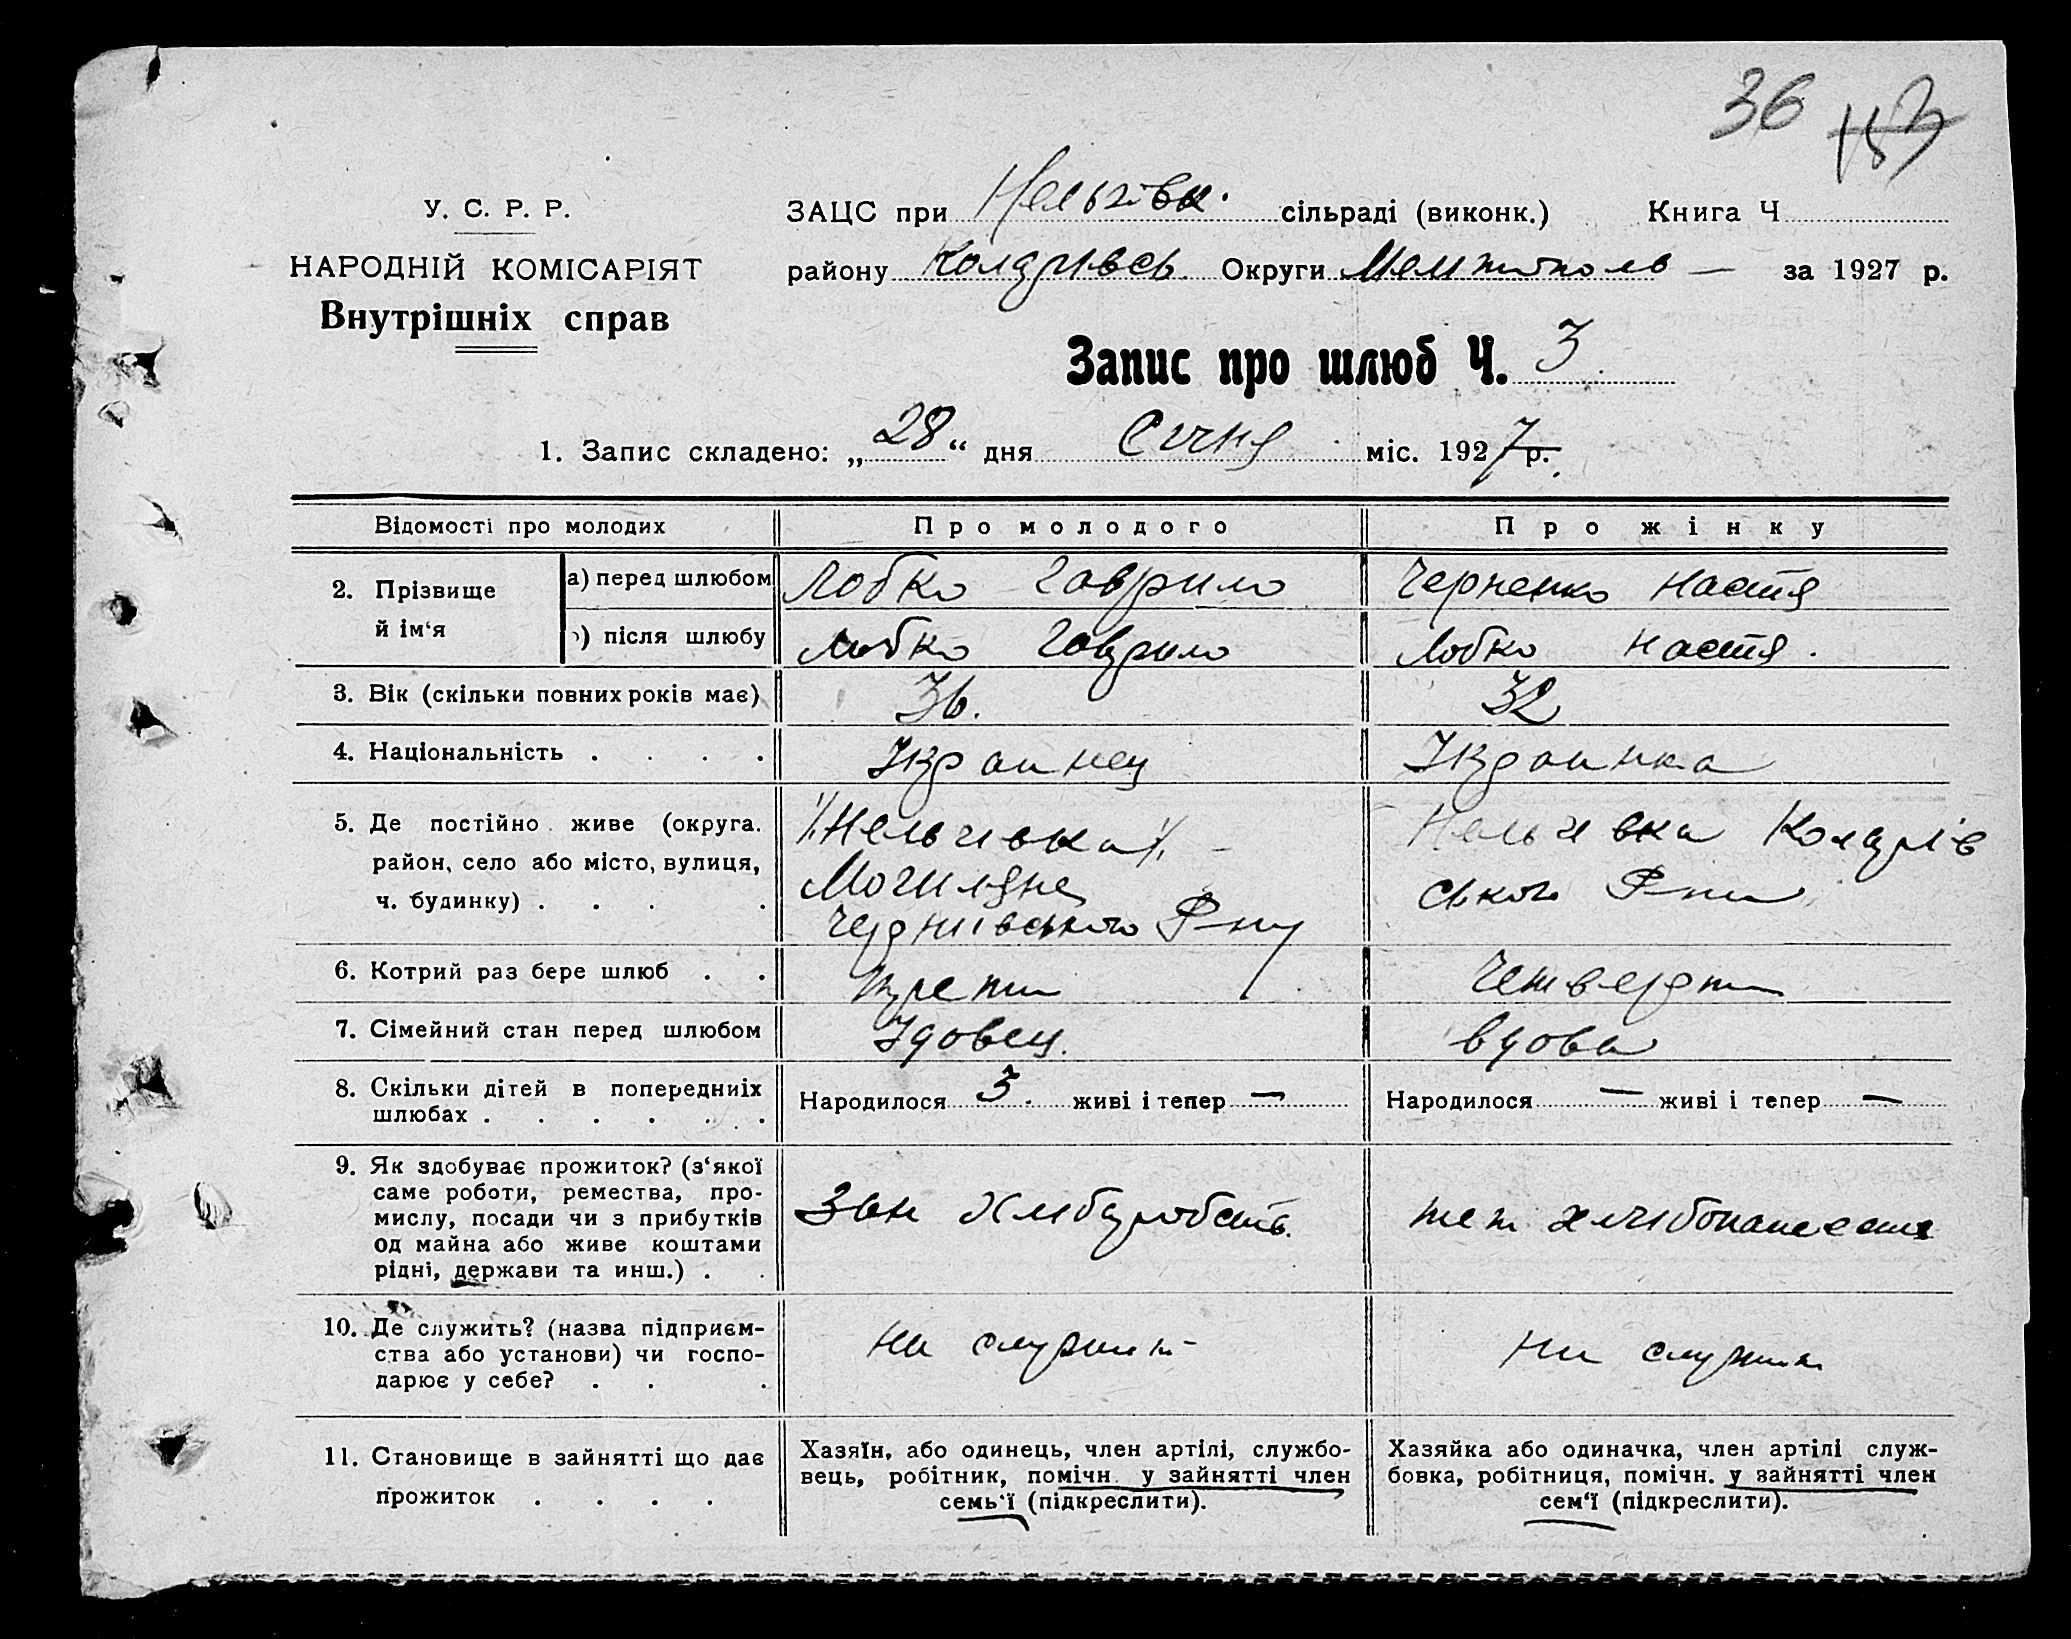 36 183
У. С. Р. Р.
НАРОДНІЙ КОМІСАРІЯТ
Внутрішніх справ
ЗАЦС при Нельгівк. сільраді (виконк.) Книга Ч
району Колярівсь Округи за 1927 р.
Запис про шлюб Ч. 3
1. Запис складено: „28“ дня Січня міс. 1927 р.
Відомості про молодих Про молодого Про жінку
2. Прізвище й ім‘я
а) перед шлюбом Лобко Гаврило Черненко Настя
) після шлюбу Лобко Гаврило Лобко Настя.
3. Вік (скільки повних років має) 36. 32
4. Національність . . . . Украинец Украинка
5. Де постійно живе (округа. район, село або місто, вулиця, ч. будинку) . . . .
Нельгивка
Могиляне
Черниівського Р-ну
Нельгивка Колярів
ського Р-ни
6. Котрий раз бере шлюб . . трети Четверти
7. Сімейний стан перед шлюбом Удовец. вдова
8. Скільки дітей в попередниіх шлюбах . . . . . .
Народилося 3. живі і тепер —
Народилося — живі і тепер —
9. Як здобуває прожиток? (з‘якої
саме роботи, ремества, про-
мислу, посади чи з прибутків
од майна або живе коштами
рідні, держави та инш.) . .
теж
10. Де служить? (назва підприєм-
ства або установи) чи госпо-
дарює у себе? . . .
ни служит
ни служит
11. Становище в зайнятті що дає
прожиток . . . .
Хазяїн, або одинець, член артілі, службо-
вець, робітник, помічн. у зайнятті член
семь‘ї (підкреслити).
Хазяйка або одиначка, член артілі служ-
бовка, робітниця, помічн. у зайнятті член
сем‘ї (підкреслити).